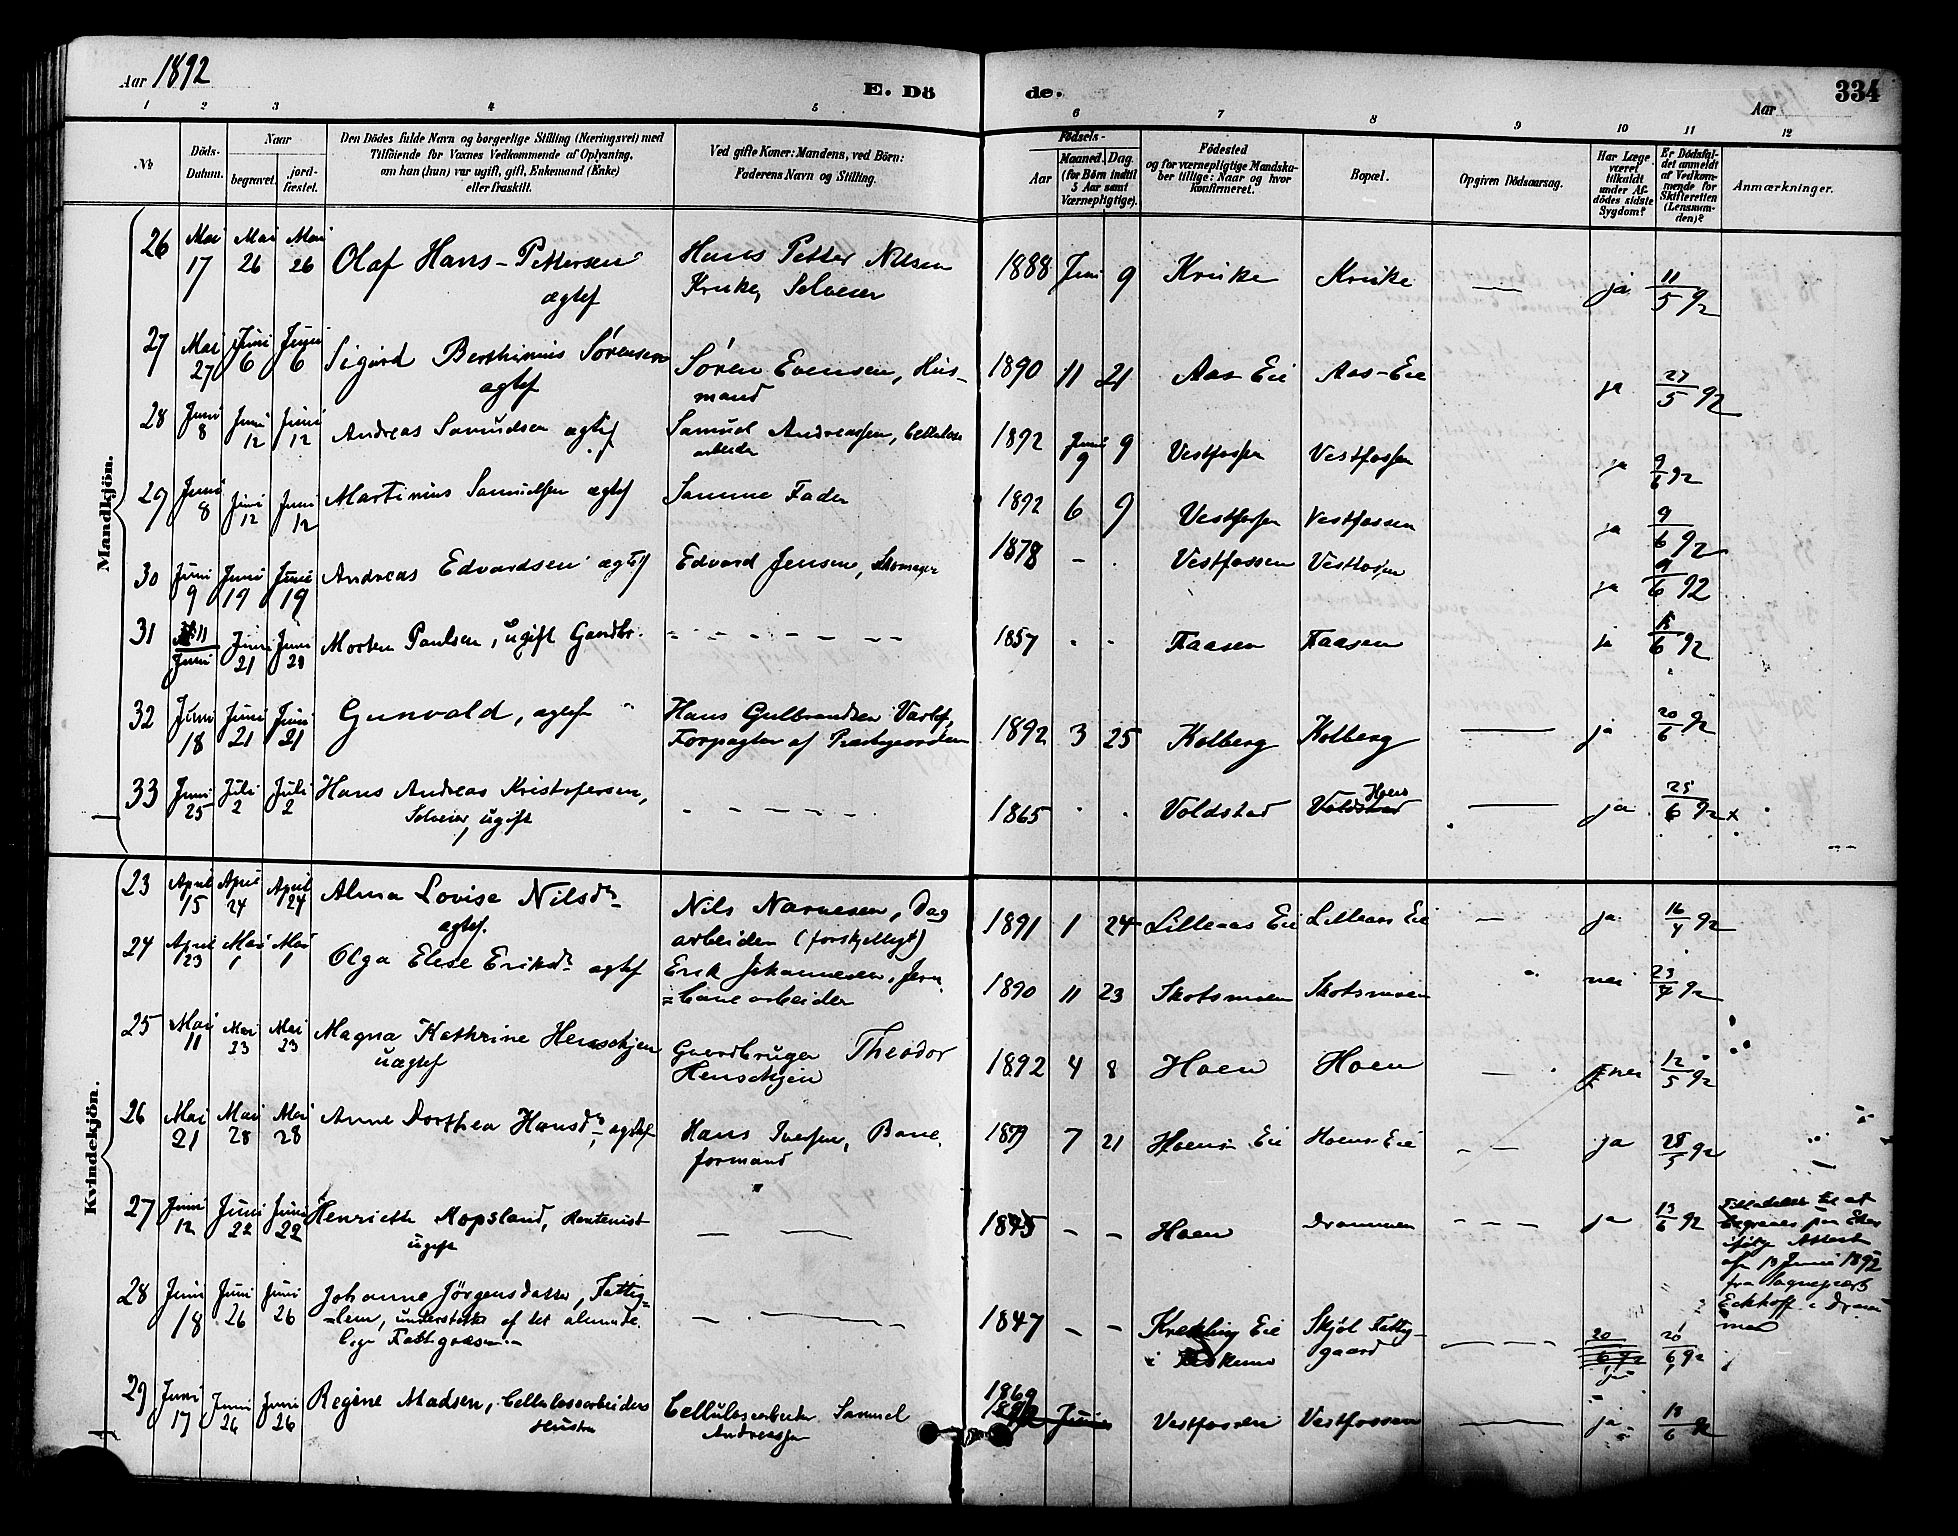 Aar 1892
E. Dö
de.
Aar
334
1 2 3 4 5 6 7 8 9 10 11 12
No
Döds-
Datum.
Naar
begravet.
jord-
fæstet.
Den Dödes fulde Navn og borgerlige Stilling (Næringsvei) med
Tilföiende for Voxnes Vedkommende af Oplysning,
om han (hun) var ugift, gift, Enkemand (Enke)
eller fraskilt.
Ved gifte Koner: Mandens, ved Börn:
Faderens Navn og Stilling.
Födsels-
Aar
Maaned. Dag.
(for Börn indtil
5 Aar samt
Værnepligtige).
Födested
og for værnepligtige Mandska-
ber tillige: Naar og hvor
konfirmeret.
Bopæl.
Opgiven Dödsaarsag.
Har Læge
været
tilkaldt
under Af-
dödes sidste
Sygdom?
Er Dödsfal-
det anmeldt
af Vedkom-
mende for
Skifteretten
(Lensman-
den)?
Anmærkninger.
Mandkjön.
26 Mai 17 Mai 26 Mai 26 Olaf Hans-Pettersen Hans Petter Nilsen 1888 Juni 9 Kruke Kruke — ja 11/5 92
ægtef Kruke, Selveier
27 Mai 27 Juni 6 Juni 6 Sigurd Berthinius Sørensen Søren Evensen, Hus- 1890 11 21 Aas-Eie Aas-Eie ja 27/5 92
ægtef mand
28 Juni 8 Juni 12 Juni 12 Andreas Samuelsen ægtef Samuel Andreassen, Cellulose 1892 Juni 9 9 Vestfossen Vestfossen ja 9/6 92
arbeider
29 Juni 8 Juni 12 Juni 12 Martinius Samuelsen ægtef Samme Fader 1892 6 9 Vestfossen Vestfossen ja 9/6 92
30 Juni 9 Juni 19 Juni 19 Andreas Edvardsen ægtef Edvard Jensen, Skomager 1878 - - Vestfossen Vestfossen ja 9/6 92
31 11 Juni Juni 21 Juni 21 Morten Paulsen, ugift Gaardbr. - - - - - - 1857 - - Faasen Faasen ja 6 92
32 Juni 18 Juni 21 Juni 21 Gunvald, ægtef Hans Gulbrandsen Varlo, 1892 3 25 Kolberg Kolberg — ja 20/6 92
Forpagter af Præstegaarden
33 Juni 25 Juli 2 Juli 2 Hans Andreas Kristofersen, - - - - - 1865 - - Voldstad Voldstad Hoen — ja 25/6 92 x
Selveier, ugift
Kvindekjön.
23 April 15 April 24 April 24 Alma Lovise Nilsdr Nils Narvesen, Dag 1891 1 24 Lilleaas Eie Lilleaas Eie — ja 16/4 92
ægtef. arbeider (forskjelligt)
24 April 23 Mai 1 Mai 1 Olga Elise Eriksdr ægtef Erik Johannesen, Jern 1890 11 23 Skotsmoen Skotsmoen " nei 23/4 92
=banearbeider
25 Mai 11 Mai 23 Mai 23 Magna Kathrine Henschjen Gaardbruger Theodor 1892 4 8 Hoen Hoen — nei 12/5 92
uægtef Henschjen
26 Mai 21 Mai 28 Mai 28 Anne Dorthea Hansdr, ægtef Hans Iversen, Bane 1879 7 21 Hoens Eie Hoens Eie - — ja 28/5 92
formand
27 Juni 12 Juni 22 Juni 22 Henriette Hopsland, Rentenist — — 1845 - - Hoen Drammen - - - ja 13/6 92
ugift
Tilladelse til at
begraves paa Eker
ifølge Attest
af 13 Juni 1892
fra Sognepræst
Eckhoff i Dram
men
28 Juni 18 Juni 26 Juni 26 Johanne Jørgensdatter, Fattig= — — 1847 - - Krekling Eie Skjøl Fattig- — 20/6 92 20/6 92
=lem, understøttet af det alminde- i gaard ja
lige Fattigvæsen
29 Juni 17 Juni 26 Juni 26 Regine Madsen, Cellulosearbeiders Cellulosearbeider Samuel 1869 1892 Juni Vestfossen Vestfossen — ja 18/6 92
Hustru Andreassen